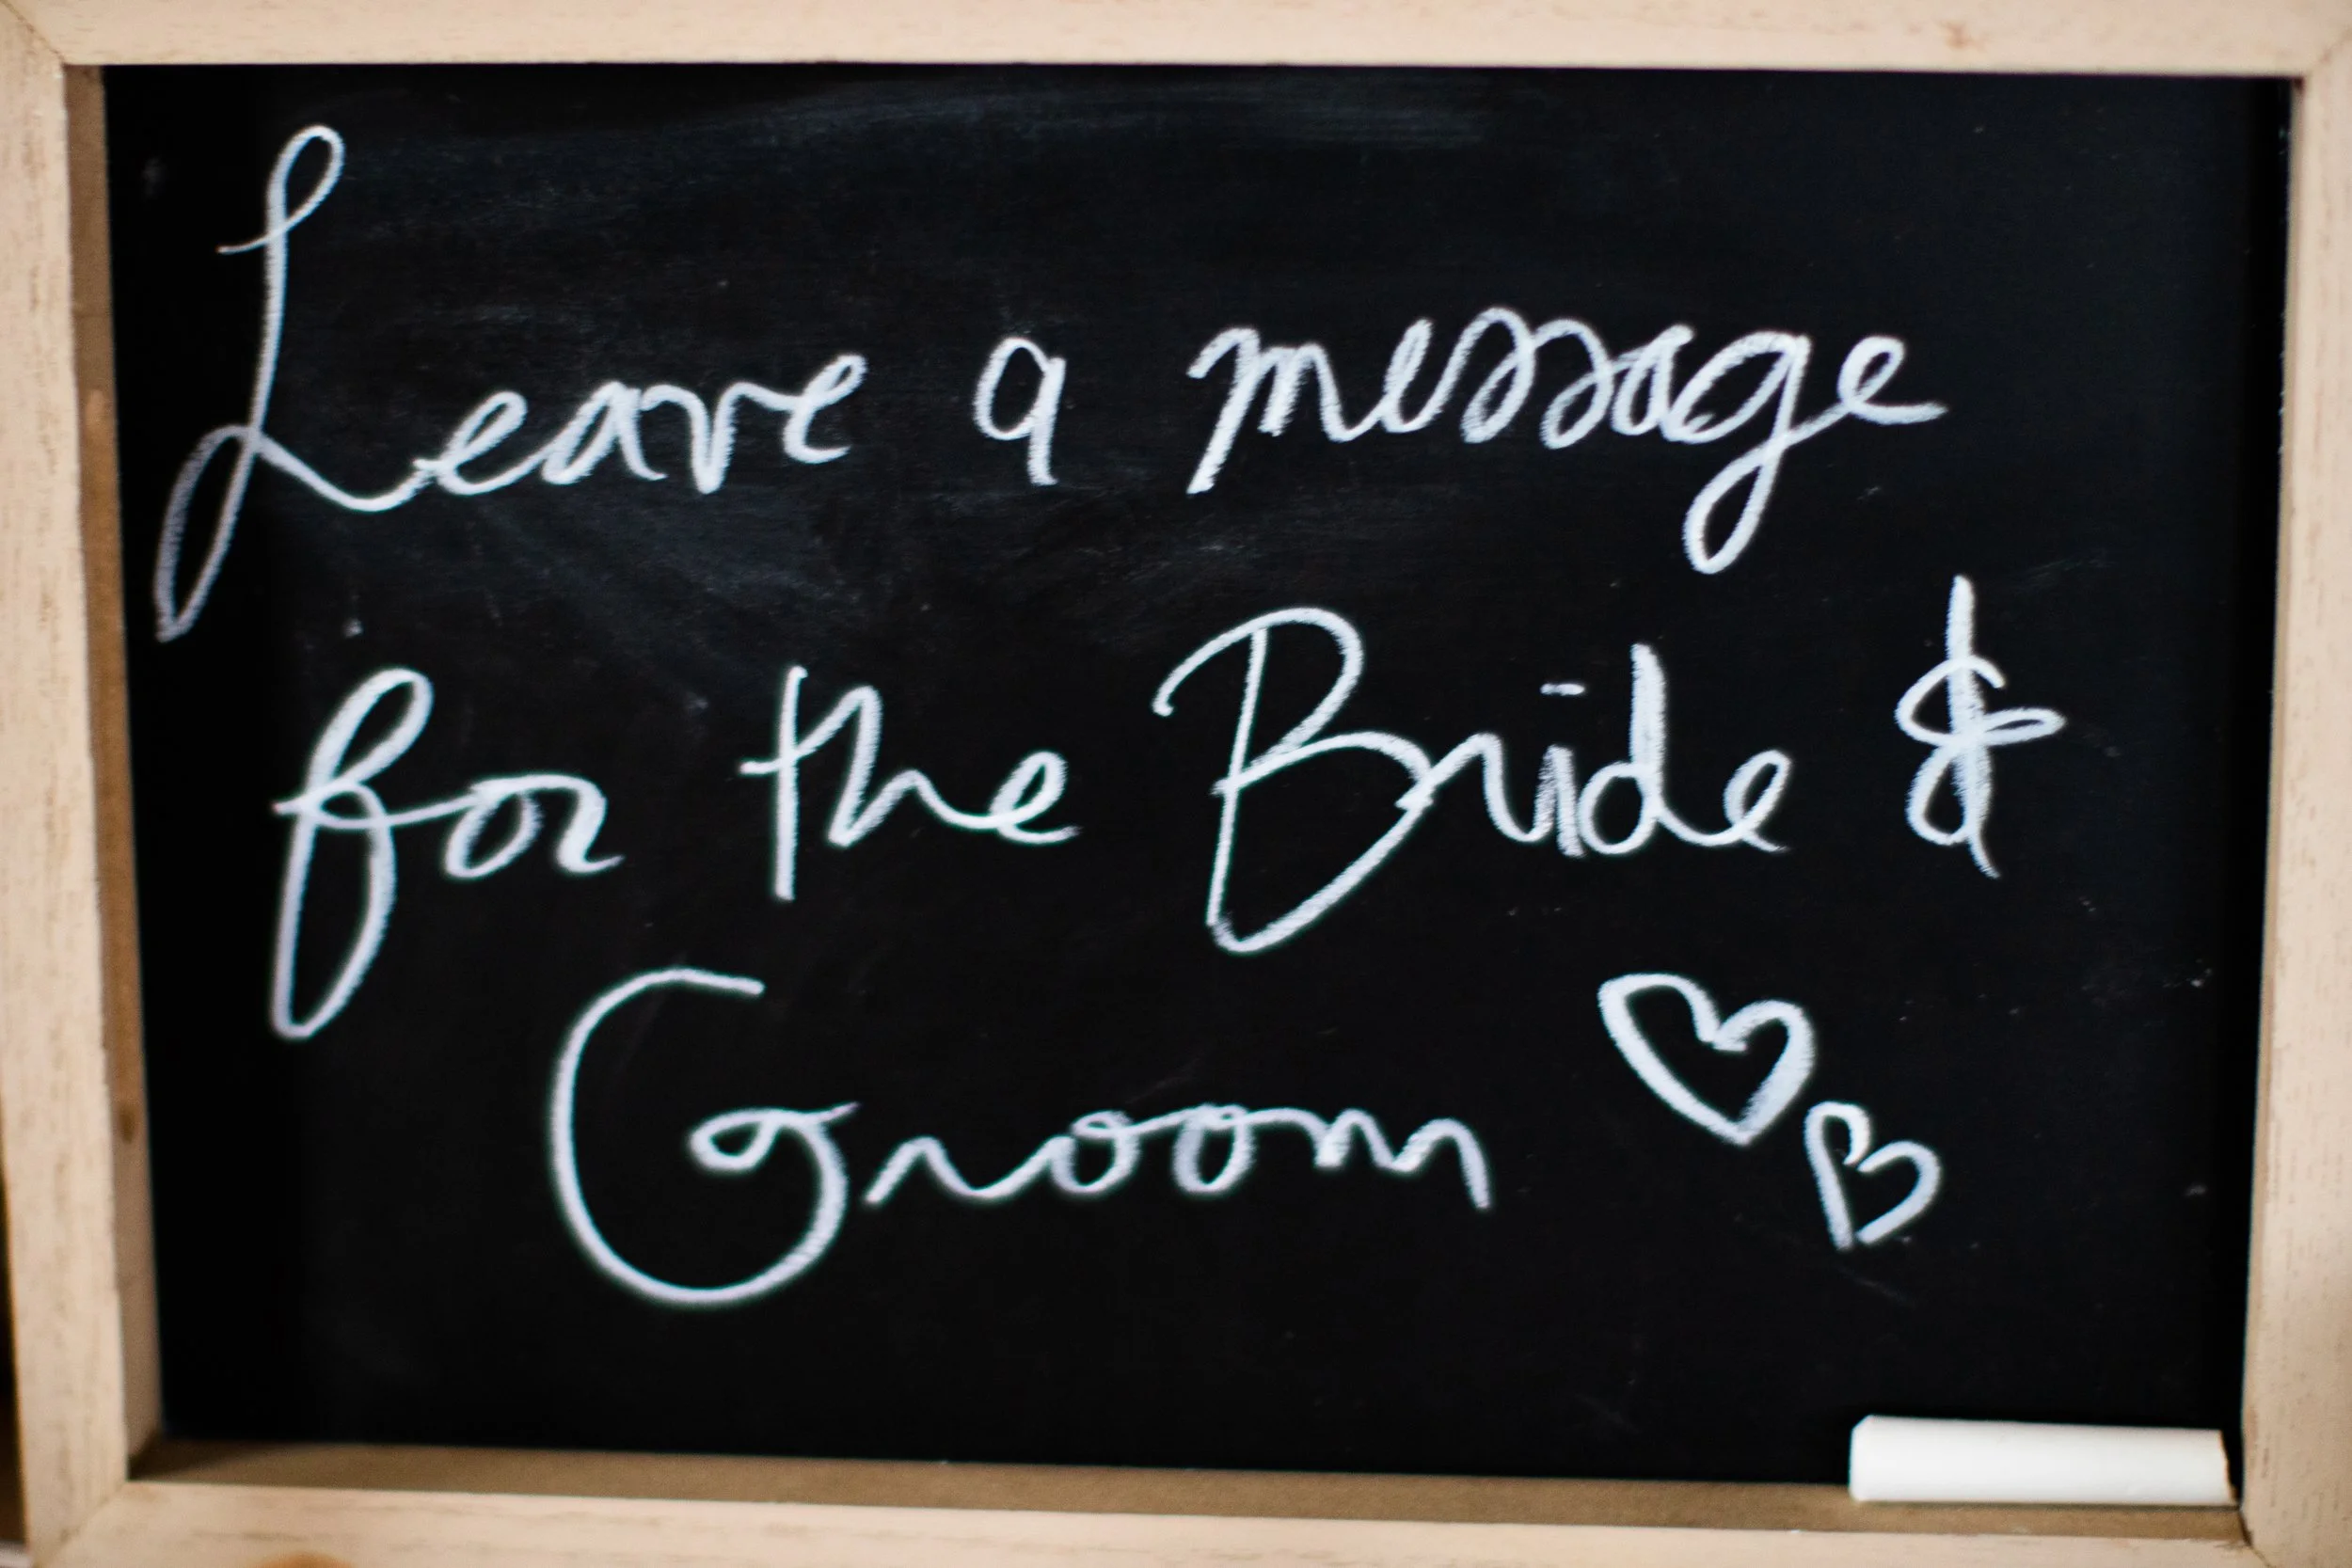 Leave a message
for the Bride &
Groom